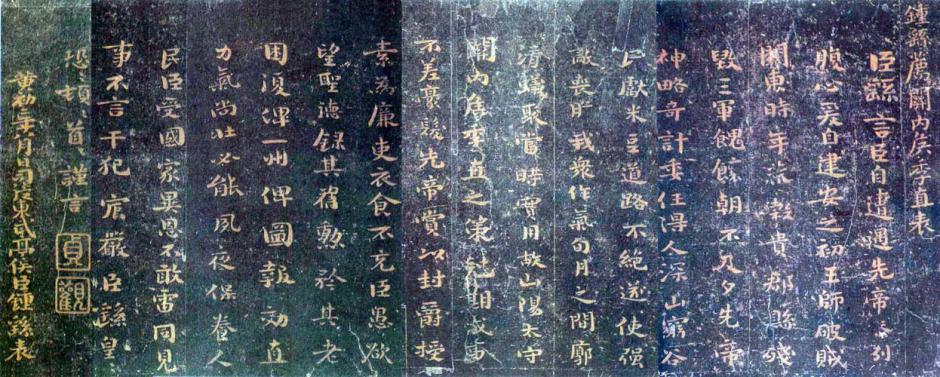 鍾繇薦關内侯季直表
臣繇言臣自遭遇先帝忝列
腹心爰自建安之初王師破賊
關東時年荒穀貴郡縣殘
毀三軍餽饟朝不及夕先帝
神略奇計委任得人深山窮谷
民獻米豆道路不絕遂使强
敵喪膽我衆作氣旬月之間廓
清蟻聚當時實用故山陽太守
關内侯季直之策尅期成事
不差豪髮先帝賞以封爵授
素為廉吏衣食不充臣愚欲
望聖德録其舊勲矜其老
困復俾一州俾圖報効直
力氣尚壯必能夙夜保養人
民臣受國家異恩不敢雷同見
事不言干犯宸嚴臣繇皇
恐頓首謹言
貞觀
黃初二年八月日司徒東武亭侯臣鍾繇表